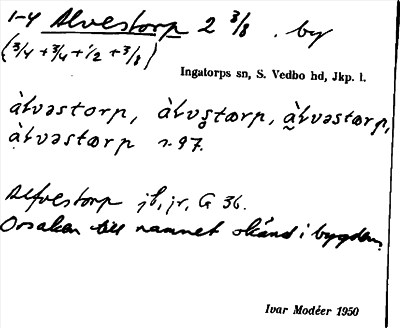 1-4 Alvestorp 2 3/8 . by
(3/4 + 3/4 + 1/2 + 3/8)
Ingatorps sn, S. Vedbo hd, Jkp. l.
àlvəstorp, àlvs̥tærp, àlvəstærp,
àlvəstærp n. 97.
Alfvestorp jb, jr, G 36.
Orsaken till namnet okänd i bygden.
Ivar Modéer 1950